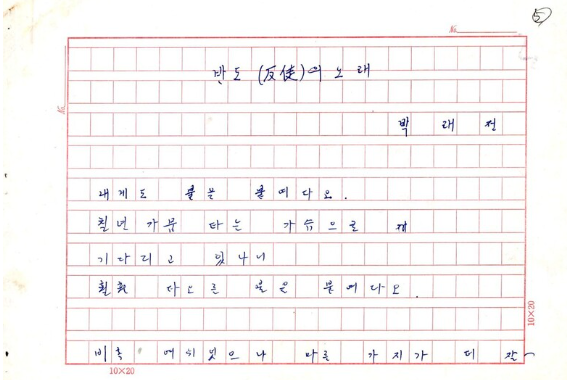 5
№
반도 (反徒)의 노래
박 래 전
№
내게도 불을 붙여다오.
칠년 가뭄 타는 가슴으로
기다리고 있나니
활활 타오를 불을 붙여다오.
비록 으나 마른 가지가 더 잘
10×20
10×20